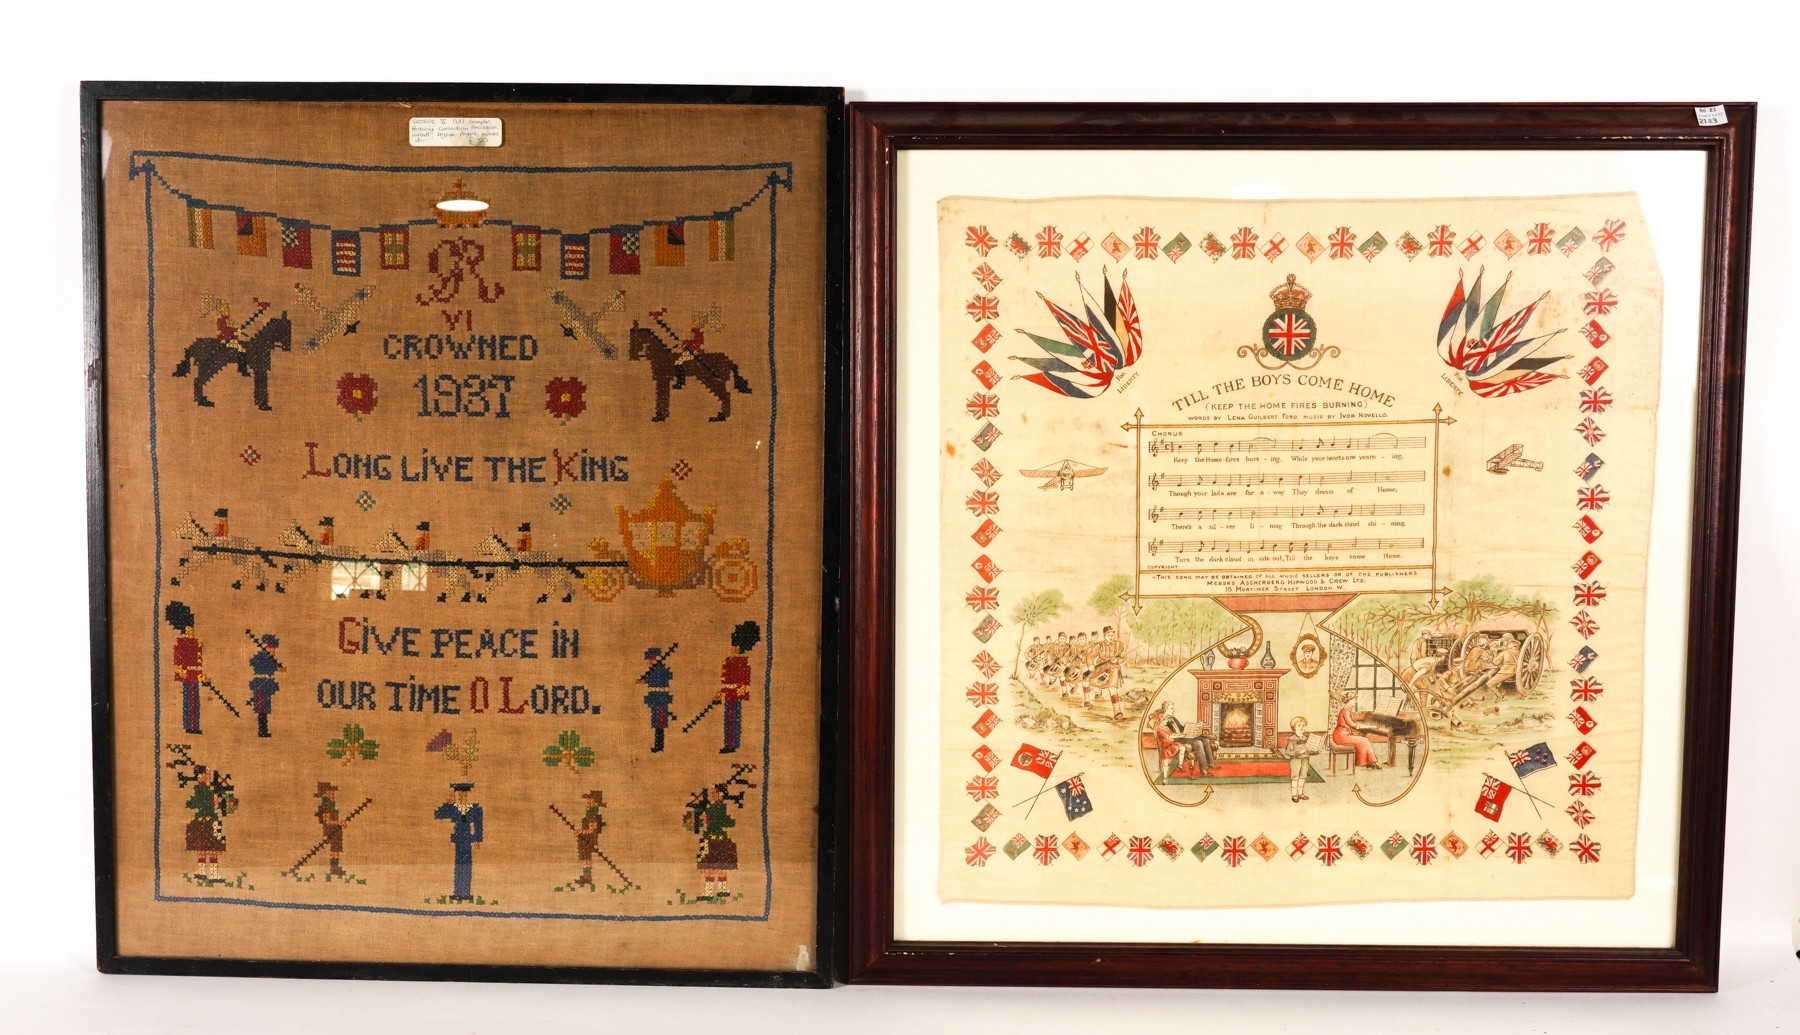 GEORGE VI 1937 Sampler,
Coronation Procession
£50
GR
VI
CROWNED
1937
LONG LIVE THE KING
GIVE PEACE IN
OUR TIME O LORD.
2183
FOR LIBERTY
FOR LIBERTY
TILL THE BOYS COME HOME
(KEEP THE HOME FIRES BURNING)
WORDS BY LENA GUILBERT FORD. MUSIC BY IVOR NOVELLO.
CHORUS
Keep the Home-fires burn-ing, While your hearts are yearn-ing,
Though your lads are far a-way They dream of Home;
There's a sil-ver li-ning Through the dark cloud shi-ning,
Turn the dark cloud in-side out, Till the boys come Home.
COPYRIGHT
THIS SONG MAY BE OBTAINED OF ALL MUSIC SELLERS OR OF THE PUBLISHERS
MESSRS ASCHERBERG HOPWOOD & CREW LTD.
16 MORTIMER STREET LONDON. W.